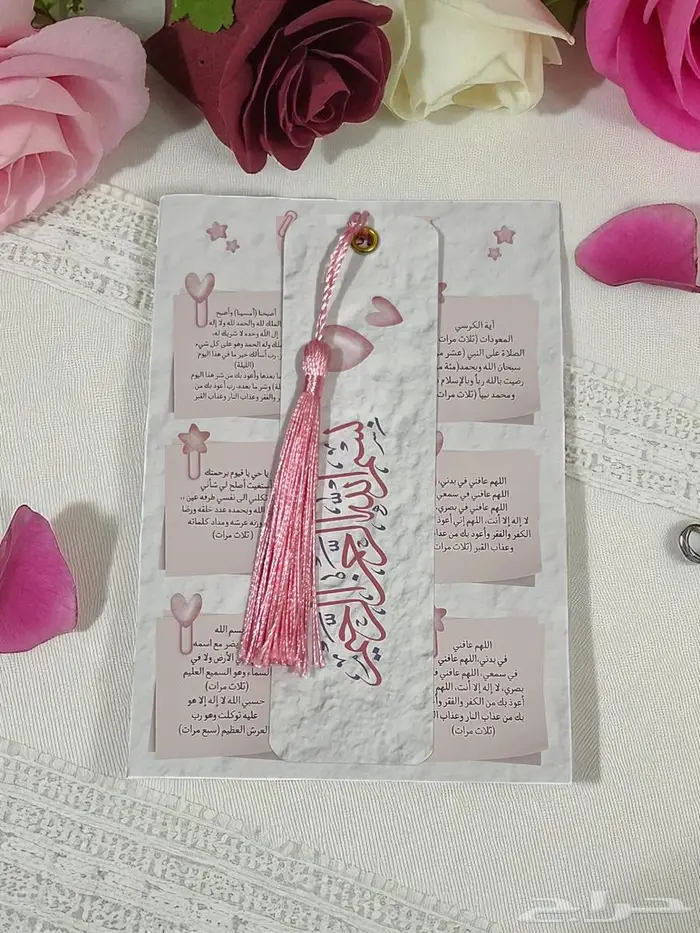 بسم الله الرحمن الرحيم
آية الكرسي
المعوذات (ثلاث مرات
الصلاة على النبي (عشر
سبحان الله وبحمده (مئة
رضيت بالله رباً وبالإسلام
ومحمد نبياً (ثلاث مرات
أصبحنا (أمسينا) وأصبح
الملك لله والحمد لله ولا إله
إل الله وحده لا شريك له،
ملك وله الحمد وهو على كل شيء
رب أسألك خير ما في هذا اليوم
(الليلة)
ما بعدها وأعوذ بك من شر هذا اليوم
وشر ما بعده، رب أعوذ بك من
والفقر وعذاب النار وعذاب القبر
اللهم عافني في بدني،
اللهم عافني في سمعي
اللهم عافني في بصري،
لا إله إلا أنت، اللهم إني أعوذ
الكفر والفقر وأعوذ بك من
وعذاب القبر (ثلاث مرات)
يا حي يا قيوم برحمتك
أستغيث أصلح لي شأني
تكلني إلى نفسي طرفه عين ..
الله وبحمده عدد خلقه ورضا
وزنه عرشه ومداد كلماته
(ثلاث مرات)
اللهم عافني
في بدني، اللهم عافني
في سمعي، اللهم عافني
بصري، لا إله إلا أنت، اللهم
أعوذ بك من الكفر والفقر
بك من عذاب النار وعذاب
(ثلاث مرات)
بسم الله
يضر مع اسمه
الأرض ولا في
السماء وهو السميع العليم
(ثلاث مرات)
حسبي الله لا إله إلا هو
عليه توكلت وهو رب
العرش العظيم (سبع مرات)
حراج